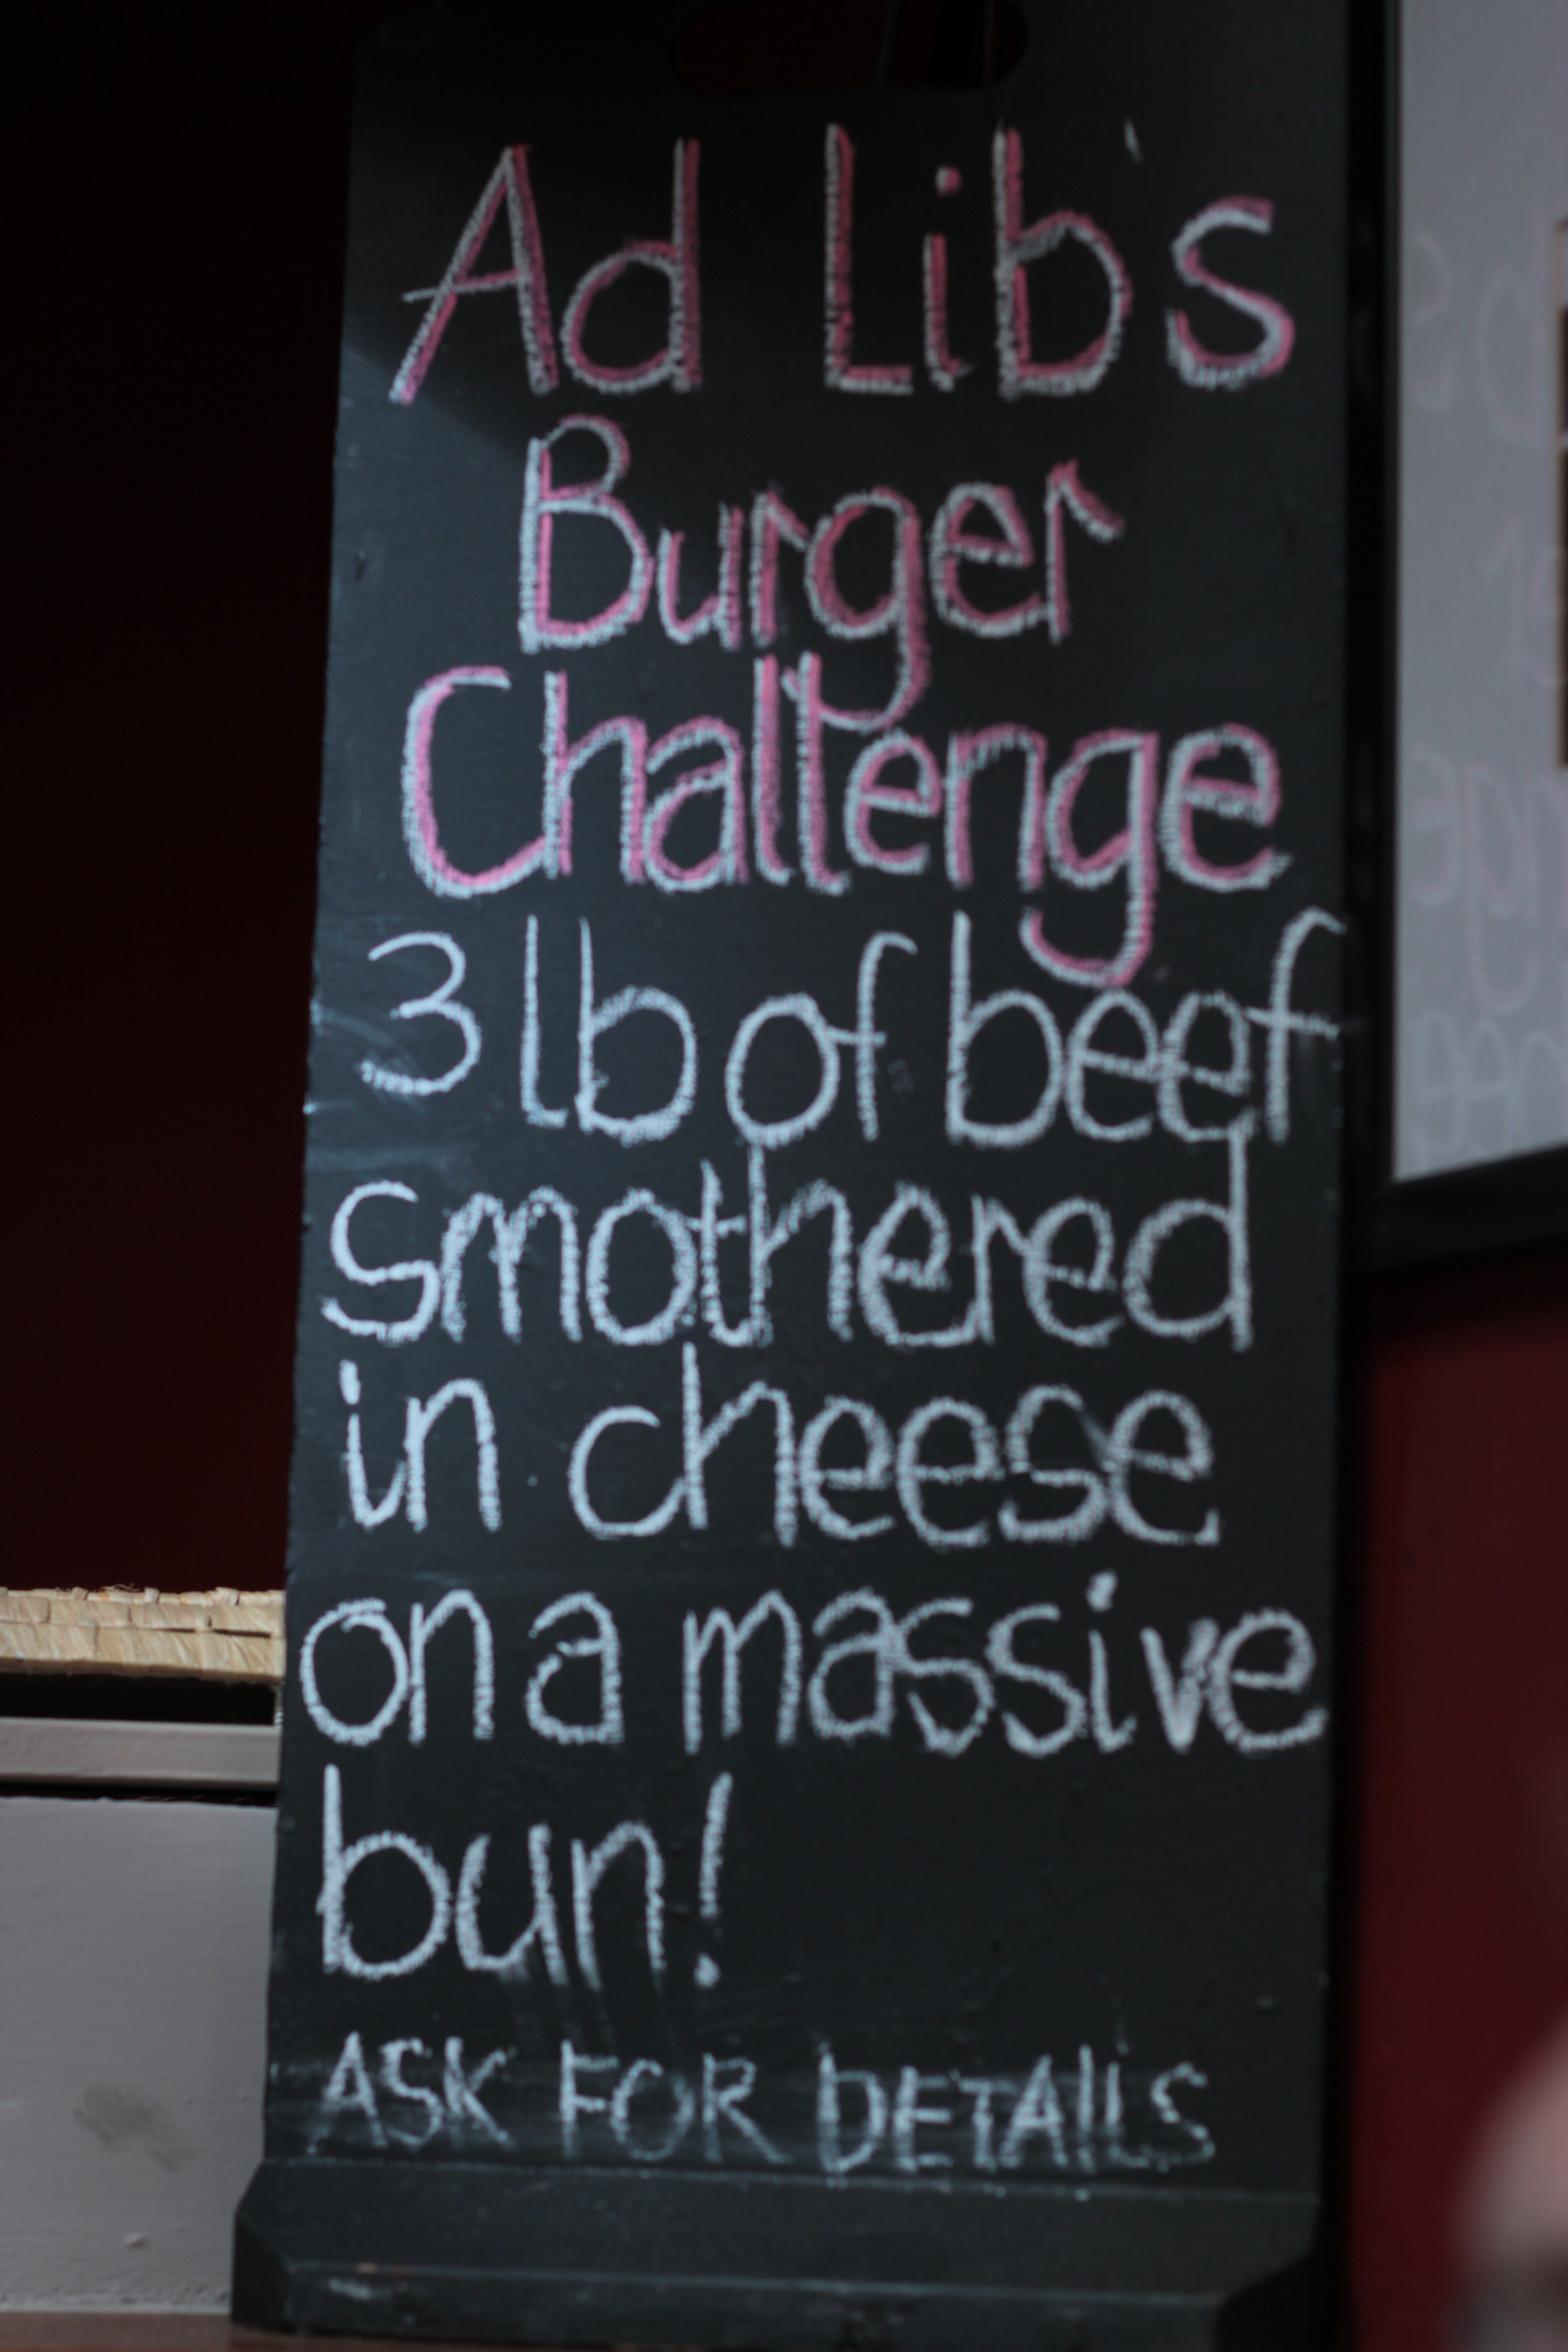 Ad Lib's
Burger
Challenge
3 lb of beef
smothered
in cheese
on a massive
bun!
ASK FOR DETAIlS